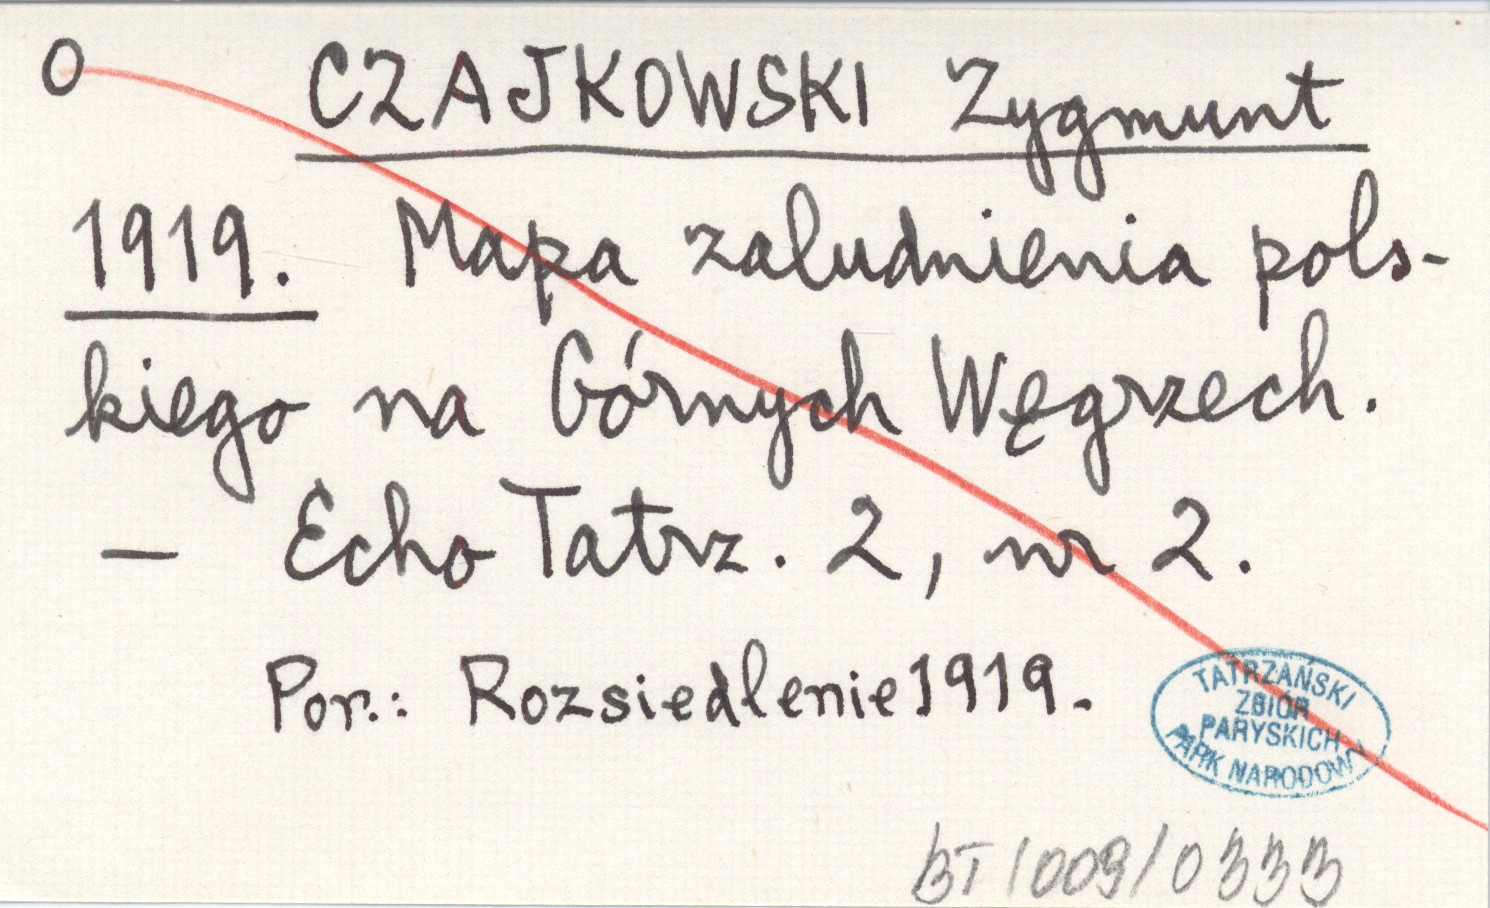 O CZAJKOWSKI Zygmunt
1919. Mapa zaludnienia pols-
kiego na Górnych Węgrzech.
— Echo Tatrz. 2, nr 2.
Por.: Rozsiedlenie 1919.
TATRZAŃSKI
ZBIÓR
PARYSKICH
PARK NARODOWY
BT/009/0333